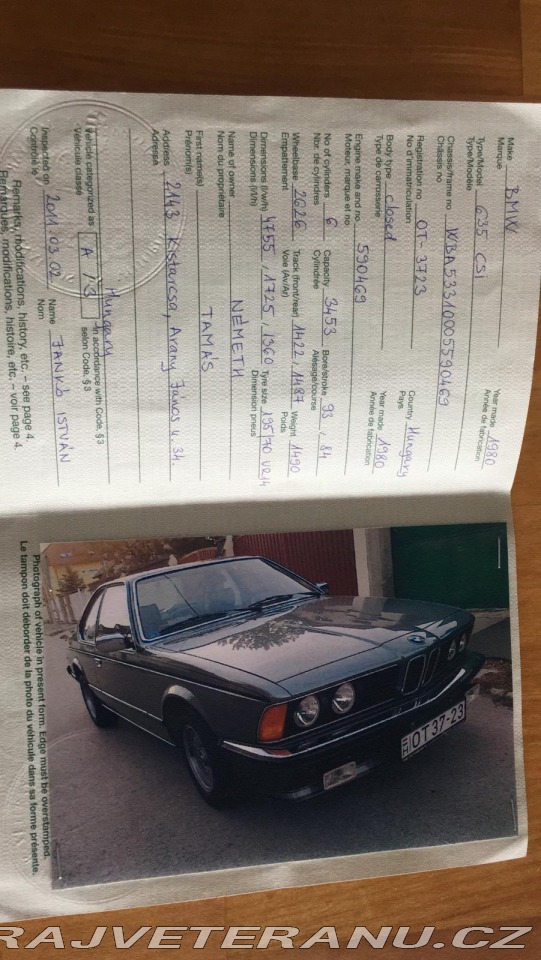 Make BMW Year made 1980
Marque Année de fabrication
Type/Model 635 CSi
Type/Modèle
Chassis/frame no WBA53310005590469
Châssis no
Registration no OT-3723 Country Hungary
No d'immatriculation Pays
Body type closed Year made 1980
Type de carrosserie Année de fabrication
Engine make and no 590469
Moteur marque et no
No of cylinders 6 Capacity 3453 Bore/stroke 93 / 84
Nbr. de cylindres Cylindrée Alésage/course
Wheelbase 2626 Track (front/rear) 1422, 1487 Weight 1490
Empattement Voie (Av/Ar) Poids
Dimensions (l/w/h) 4755, 1725, 1360 Tyre size 195/70 VR14
Dimensions (l/l/h) Dimension pneus
Name of owner NÉMETH
Nom du propriétaire
First name(s) TAMÁS
Prénom(s)
Address 2143 Kistarcsa, Arany János u. 34.
Adresse
Hungary
Vehicle categorized as A / 3 in accordance with Code, §3
Véhicule classé selon Code, §3
Inspected on 2011.03.02 Name JANKÓ ISTVÁN
Contrôlé le Nom
Remarks, modifications, history, etc. – see page 4.
Remarques, modifications, histoire, etc. – voir page 4.
H OT 37-23
Photograph of vehicle in present form. Edge must be overstamped.
Le tampon doit déborder de la photo du véhicule dans sa forme présente.
RAJVETERANU.CZ